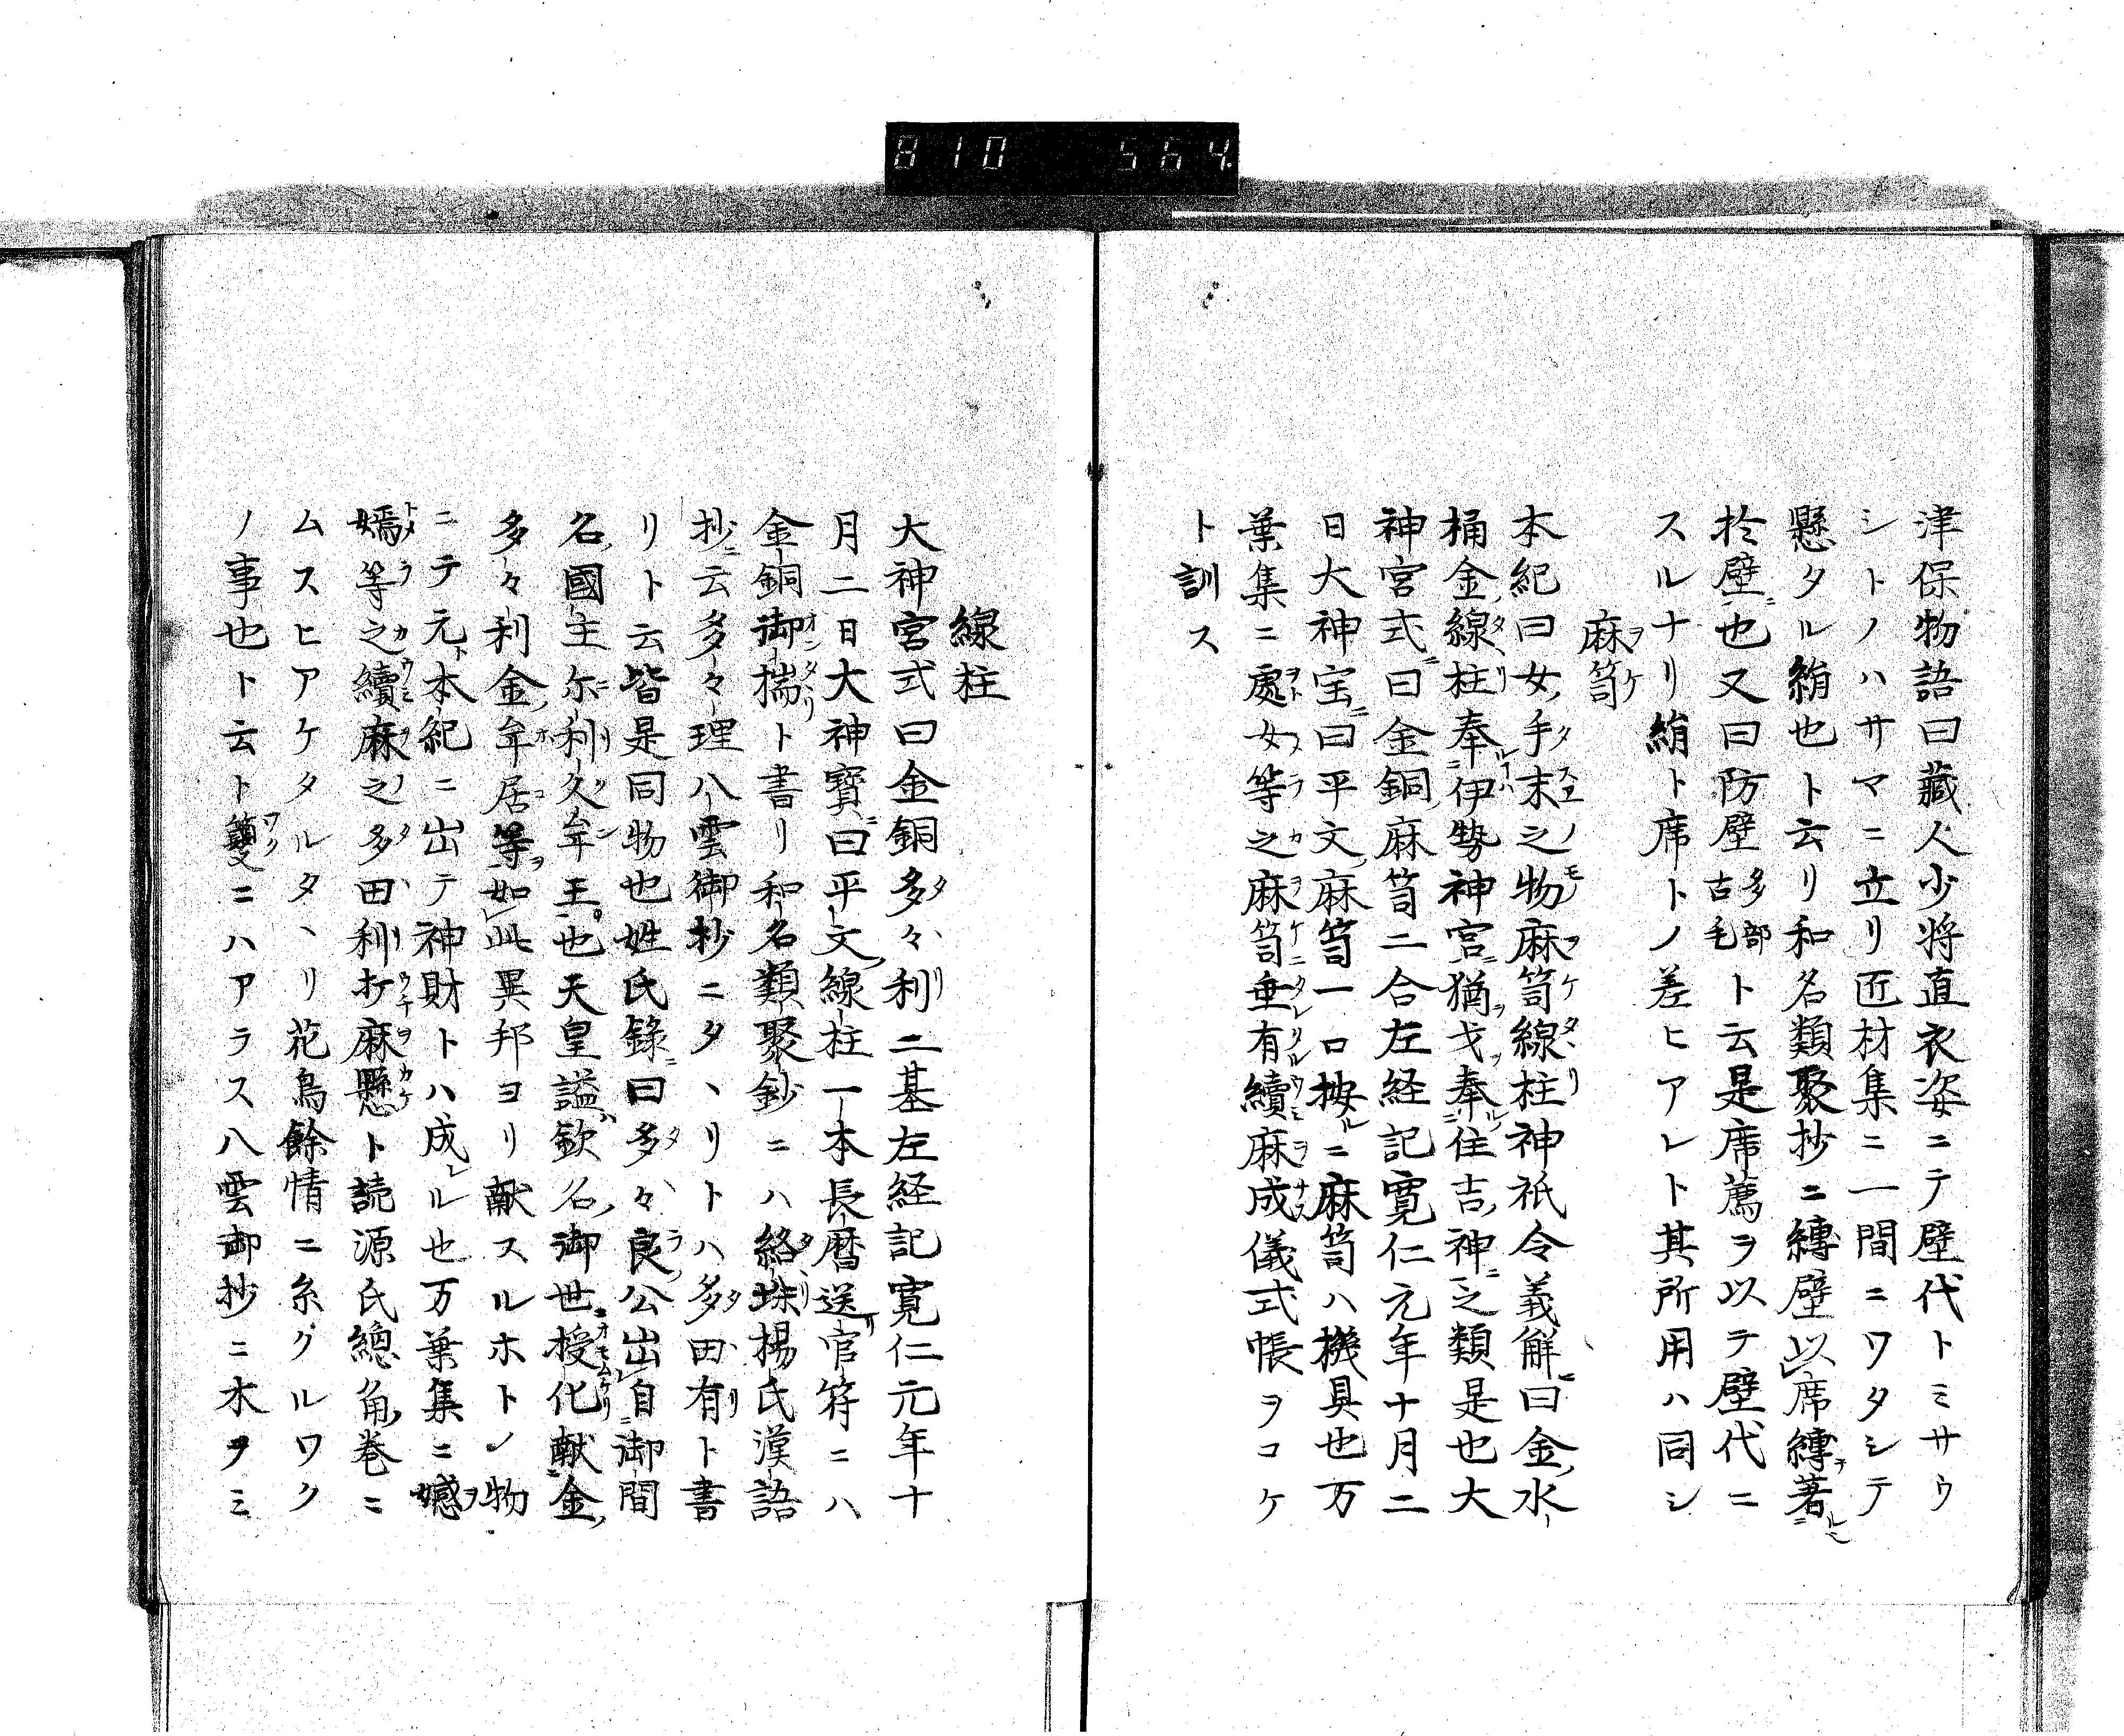 810 564
津保物語曰藏人少将直衣姿ニテ壁代トミサウ
シトノハサマニ立リ匠材集ニ一間ニワタシテ
懸タル絹也ト云リ和名類聚抄ニ縛壁以席縛著
於壁也又曰防壁多都古毛ト云是席薦ヲ以テ壁代ニ
スルナリ絹ト席トノ差ヒアレト其所用ハ同シ
麻笥
本紀曰女手末之物麻笥線柱神祇令義解曰金水
桶金線柱奉伊勢神宮猶戈奉住吉神之類是也大
神宮式曰金銅麻笥二合左経記寛仁元年十月二
日大神宝曰平文麻笥一口按ルニ麻笥ハ機具也万
葉集ニ處女等之麻笥垂有續麻成儀式帳ヲコケ
ト訓ス
線柱
大神宮式曰金銅多々利二基左経記寛仁元年十
月二日大神寶曰平文線柱一本長暦送官符ニハ
金銅御揣ト書リ和名類聚鈔ニハ絡垛楊氏漢語
抄云多々理八雲御抄ニタヽリトハ多田有ト書
リト云皆是同物也姓氏錄曰多々良公出自御間
名國主尓利久牟王也天皇謚欽名御世授化献金
多々利金牟居等如此異邦ヨリ献スルホトノ物
ニテ元本紀ニ出テ神財トハ成ル也万葉集ニ
嬬等之續麻之多田利打麻懸ト読源氏總角巻ニ
ムスヒアケタルタヽリ花鳥餘情ニ糸クルワク
ノ事也ト云トニハアラス八雲御抄ニ木ヲミ